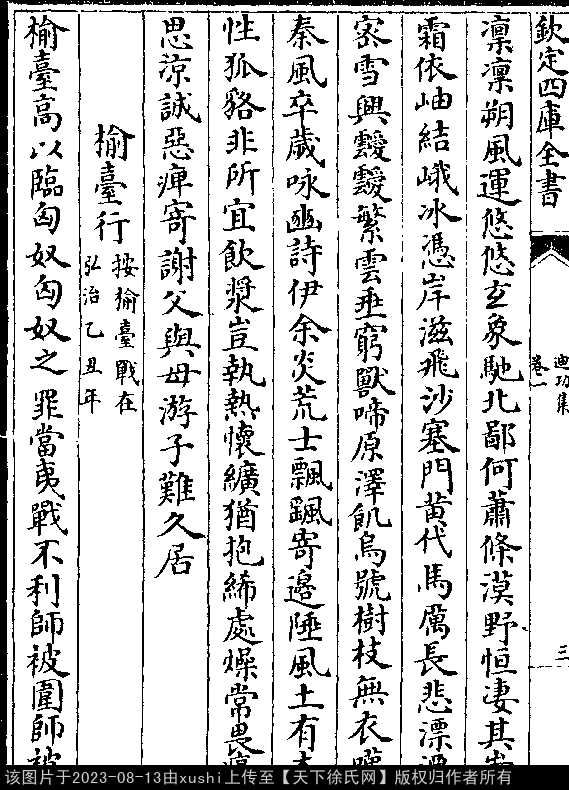 欽定四庫全書
迪功集
卷一
三
凛凛朔風運悠悠玄象馳北鄙何蕭條漠野恒凄其
霜依岫結峨冰憑岸滋飛沙塞門黄代馬厲長悲漂
寀雪興靉靆繁雲垂窮獸啼原澤飢烏號樹枝無衣
秦風卒歲咏豳詩伊余炎荒士飄颻寄邉陲風土有
性狐貉非所宜飲漿豈執熱懷纊猶抱絺處燥常畏
思涼誠惡痺寄謝父與母游子難久居
榆臺行 按榆臺戰在
弘治乙丑年
榆臺高以臨匈奴匈奴之罪當夷戰不利師被圍師被
该图片于2023-08-13由xushi上传至【天下徐氏网】版权归作者所有